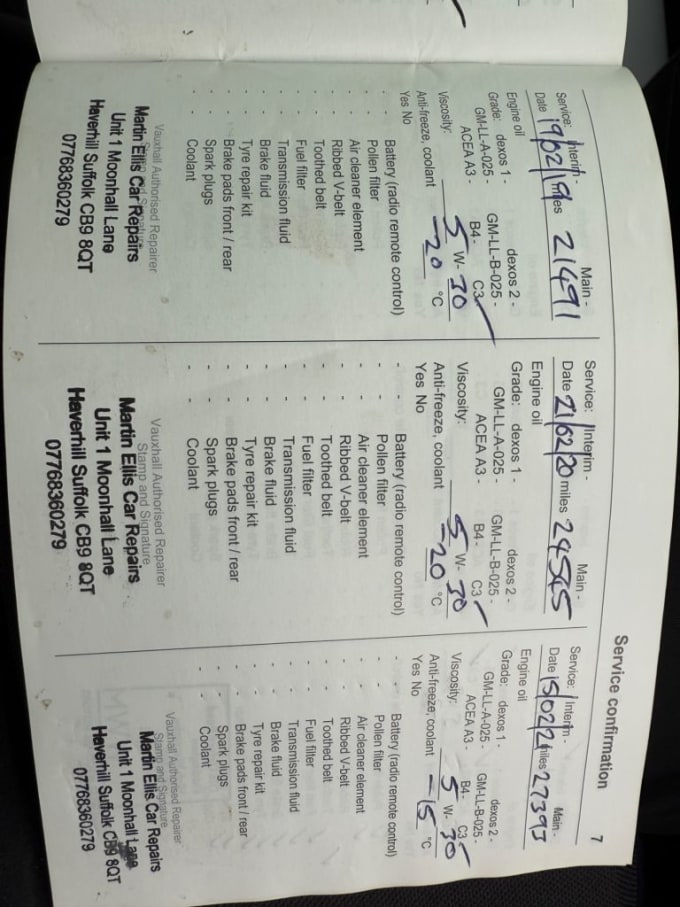 Service confirmation
7
Service: Interim - Main -
Date 19/02/19 miles 21491
Engine oil
Grade: dexos 1 - dexos 2 -
GM-LL-A-025 - GM-LL-B-025 -
ACEA A3 - B4 - C3 ✓
Viscosity: 5 W- 30
Anti-freeze, coolant -20 °C
Yes No
- - Battery (radio remote control)
- - Pollen filter
- - Air cleaner element
- - Ribbed V-belt
- - Toothed belt
- - Fuel filter
- - Transmission fluid
- - Brake fluid
- - Tyre repair kit
- - Brake pads front / rear
- - Spark plugs
- - Coolant
Vauxhall Authorised Repairer
Stamp and Signature
Martin Ellis Car Repairs
Unit 1 Moonhall Lane
Haverhill Suffolk CB9 8QT
07768360279
Service: Interim - Main -
Date 21/02/20 miles 24545
Engine oil
Grade: dexos 1 - dexos 2 -
GM-LL-A-025 - GM-LL-B-025 -
ACEA A3 - B4 - C3 ✓
Viscosity: 5 W- 30
Anti-freeze, coolant -20 °C
Yes No
- - Battery (radio remote control)
- - Pollen filter
- - Air cleaner element
- - Ribbed V-belt
- - Toothed belt
- - Fuel filter
- - Transmission fluid
- - Brake fluid
- - Tyre repair kit
- - Brake pads front / rear
- - Spark plugs
- - Coolant
Vauxhall Authorised Repairer
Stamp and Signature
Martin Ellis Car Repairs
Unit 1 Moonhall Lane
Haverhill Suffolk CB9 8QT
07768360279
Service: Interim - Main -
Date 15/02/21 miles 27393
Engine oil
Grade: dexos 1 - dexos 2 -
GM-LL-A-025 - GM-LL-B-025 -
ACEA A3 - B4 - C3 ✓
Viscosity: 5 W- 30
Anti-freeze, coolant -15 °C
Yes No
- - Battery (radio remote control)
- - Pollen filter
- - Air cleaner element
- - Ribbed V-belt
- - Toothed belt
- - Fuel filter
- - Transmission fluid
- - Brake fluid
- - Tyre repair kit
- - Brake pads front / rear
- - Spark plugs
- - Coolant
Vauxhall Authorised Repairer
Stamp and Signature
Martin Ellis Car Repairs
Unit 1 Moonhall Lane
Haverhill Suffolk CB9 8QT
07768360279